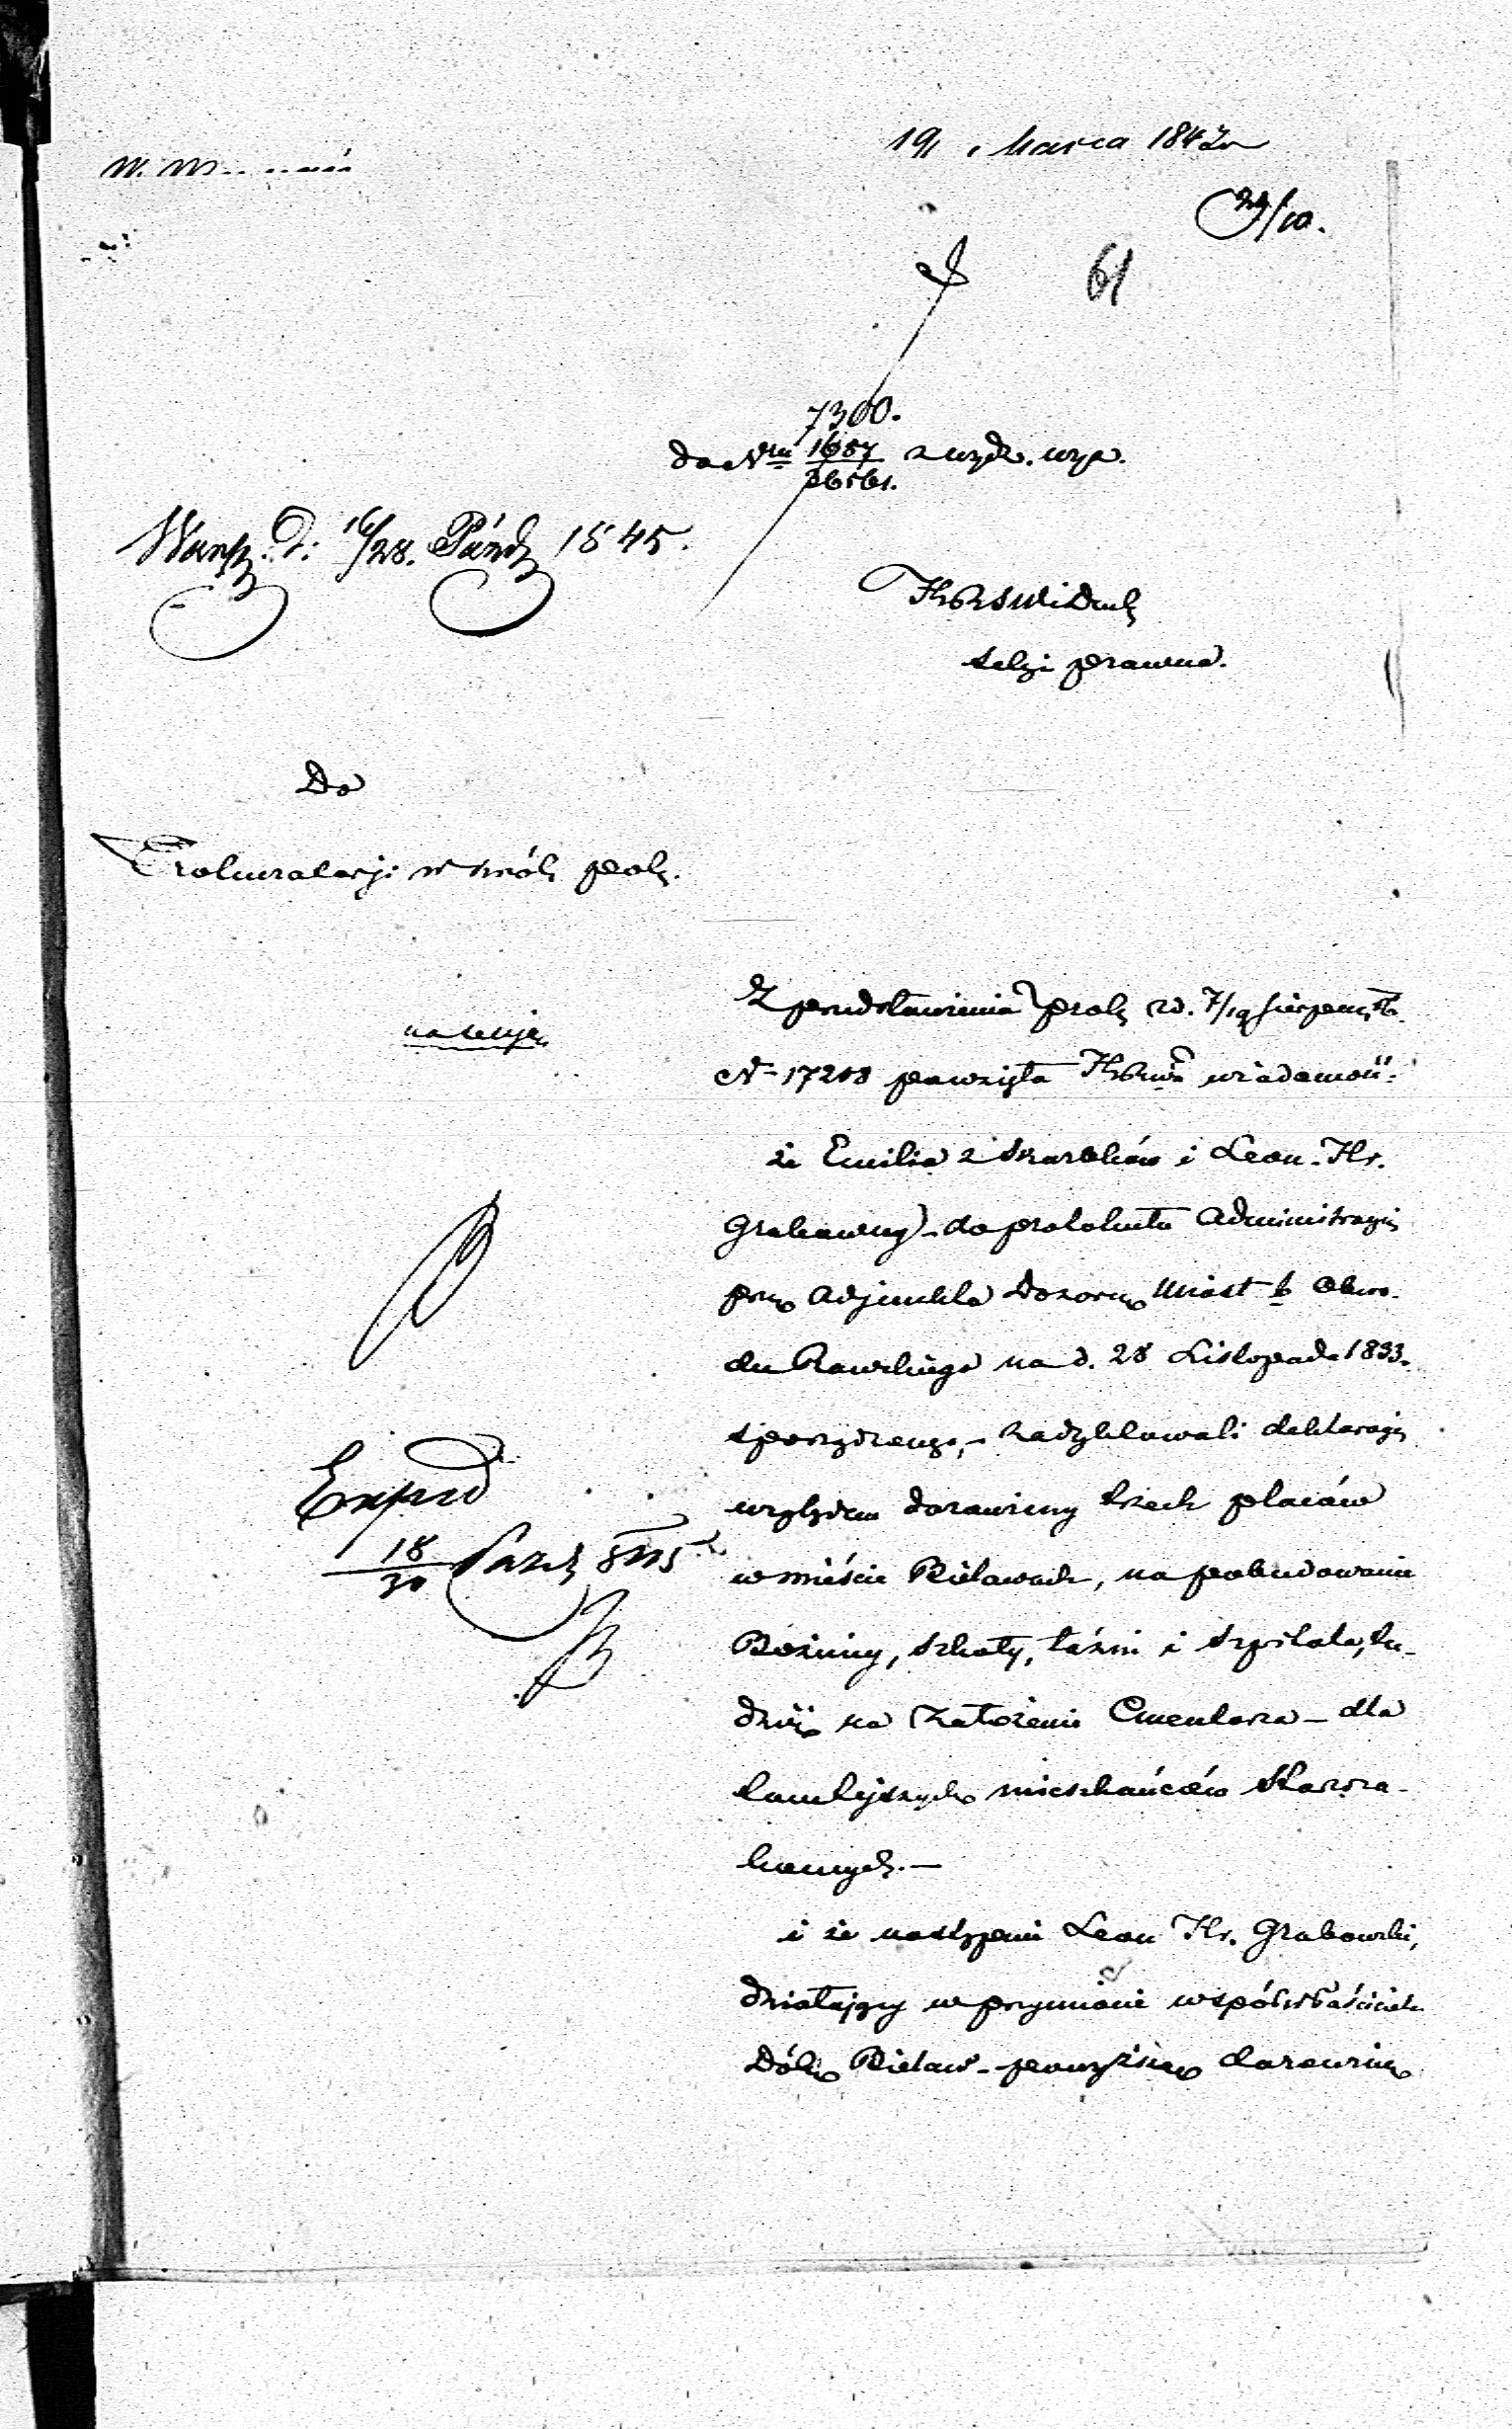 19 Marca 1847
29/10.
61
7300.
do Nru 1687 z wydz. wyz.
36561.
Warsz. d. 16/28. Paźdz 1845.
KRSWiDuch
Sekcji prawna.
Do
Prokuratorji w Król. Pols.
na sekcję
Z przedstawienia Prok. z d. 7/19 Sierpnia rb.
N 17208 powzięła wiadomość:
że Emilia z Skarbków i Leon Hr.
Grabowscy do protokułu Administracyj.
prz. Adjunkta Dozorcy Miast b. Obwo-
du Rawskiego na d. 28 Listopada 1833.
sporządzonego, zadyktowali deklaracyą
względem darowizny trzech placów
w mieście Bielawach, na pobudowanie
Bóżnicy, szkoły, łaźni i szpitala, tu-
dzież na założenie Cmentarza – dla
tamtejszych mieszkańców Staroza-
konnych. –
i że następnie Leon Hr. Grabowski,
działający w przymiocie współwłaściciela
Dóbr Bielaw – powyższą darowiznę
Exped
18/30 Paźdz 845